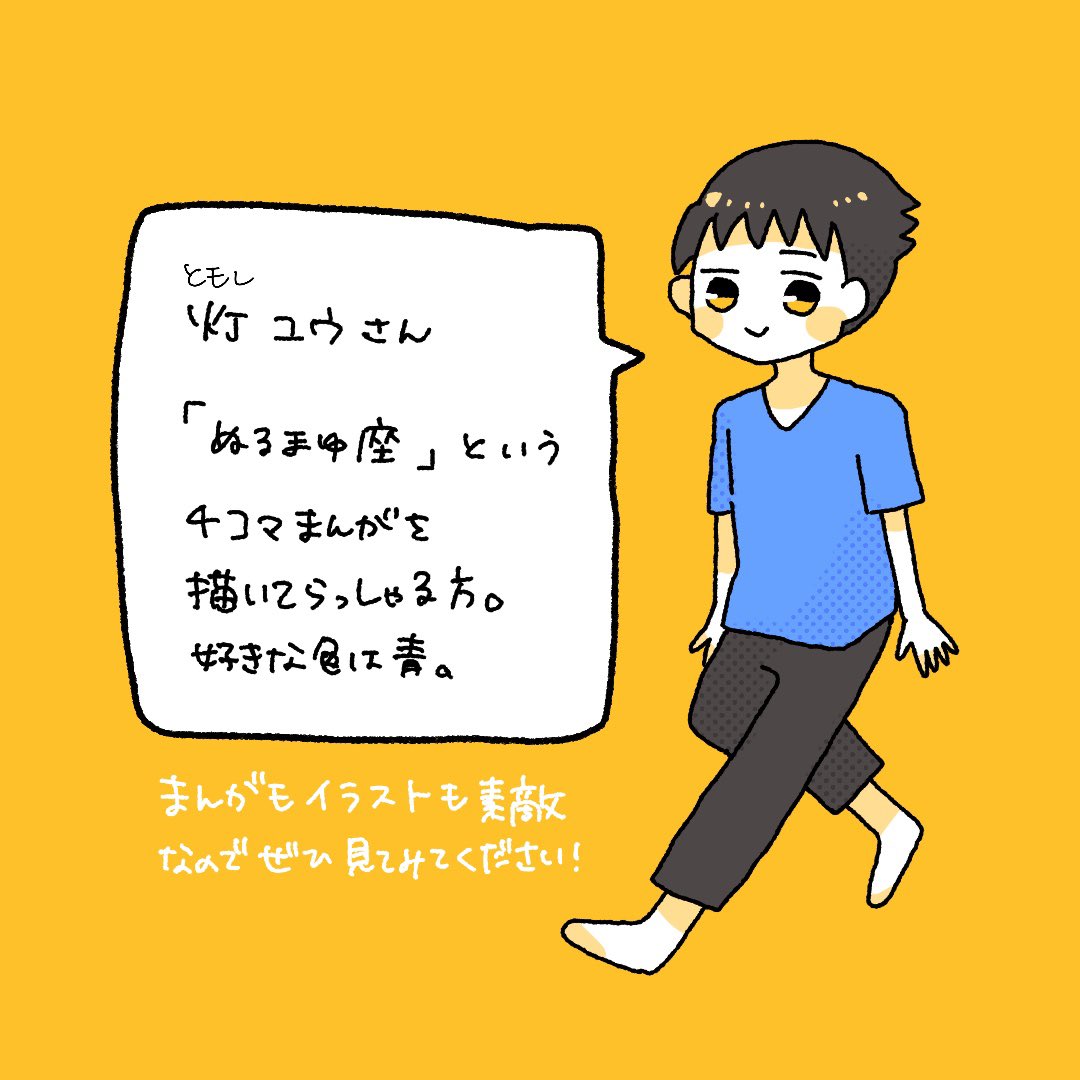 ともし
灯 ユウさん
「ぬるまゆ座」という
4コマまんがを
描いてらっしゃる方。
好きな色は青。
まんがもイラストも素敵
なのでぜひ見てみてください!